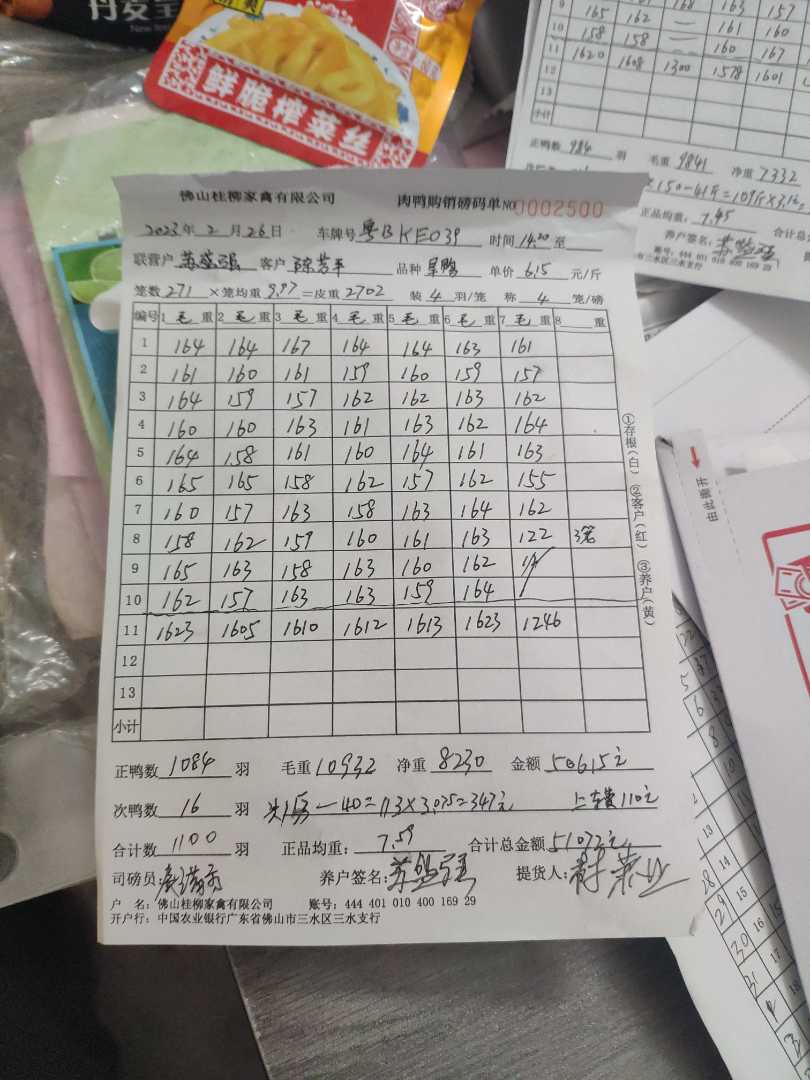 丹麦
New
鲜脆榨菜丝
9 165 161 168 163 157
10 158 162 — 161 160
11 1620 158 — 160 167
12 1608 1300 1578 1601
13
小计
正鸭数 984 羽 毛重 9841 净重 7332
×150-41斤=109斤×3.
正品均重: 7.45 合计总
养户签名:
账号: 444 401 010 400 169 29
市三水区三水支行
佛山桂柳家禽有限公司 肉鸭购销磅码单 NO 0002500
2023年 2月 26日 车牌号 粤BKE039 时间 14.20 至
联营户 苏 强 客户 品种 单价 6.15 元/斤
笼数 271 ×笼均重 9.97 =皮重 2702 装 4 羽/笼 称 4 笼/磅
编号 1 毛 重 2 毛 重 3 毛 重 4 毛 重 5 毛 重 6 毛 重 7 毛 重 8 重
1 164 164 167 164 164 163 161
2 161 160 161 159 160 159 157
3 164 159 157 162 162 163 162
4 160 160 163 161 163 162 164
5 164 158 161 160 164 161 163
6 165 165 158 162 157 162 155
7 160 157 163 158 163 164 162
8 158 162 159 160 161 163 122 3笼
9 165 163 158 163 160 162
10 162 157 163 163 159 164
11 1623 1605 1610 1612 1613 1623 1246
12
13
小计
正鸭数 1084 羽 毛重 10932 净重 8230 金额 50615元
次鸭数 16 羽 153-40=113×3.075=347元 上车费110元
合计数 1100 羽 正品均重: 7.59 合计总金额 51072元
司磅员: 养户签名: 苏 强 提货人:
户 名: 佛山桂柳家禽有限公司 账号: 444 401 010 400 169 29
开户行: 中国农业银行广东省佛山市三水区三水支行
①存根(白) ②客户(红) ③养户(黄)
由此撕开